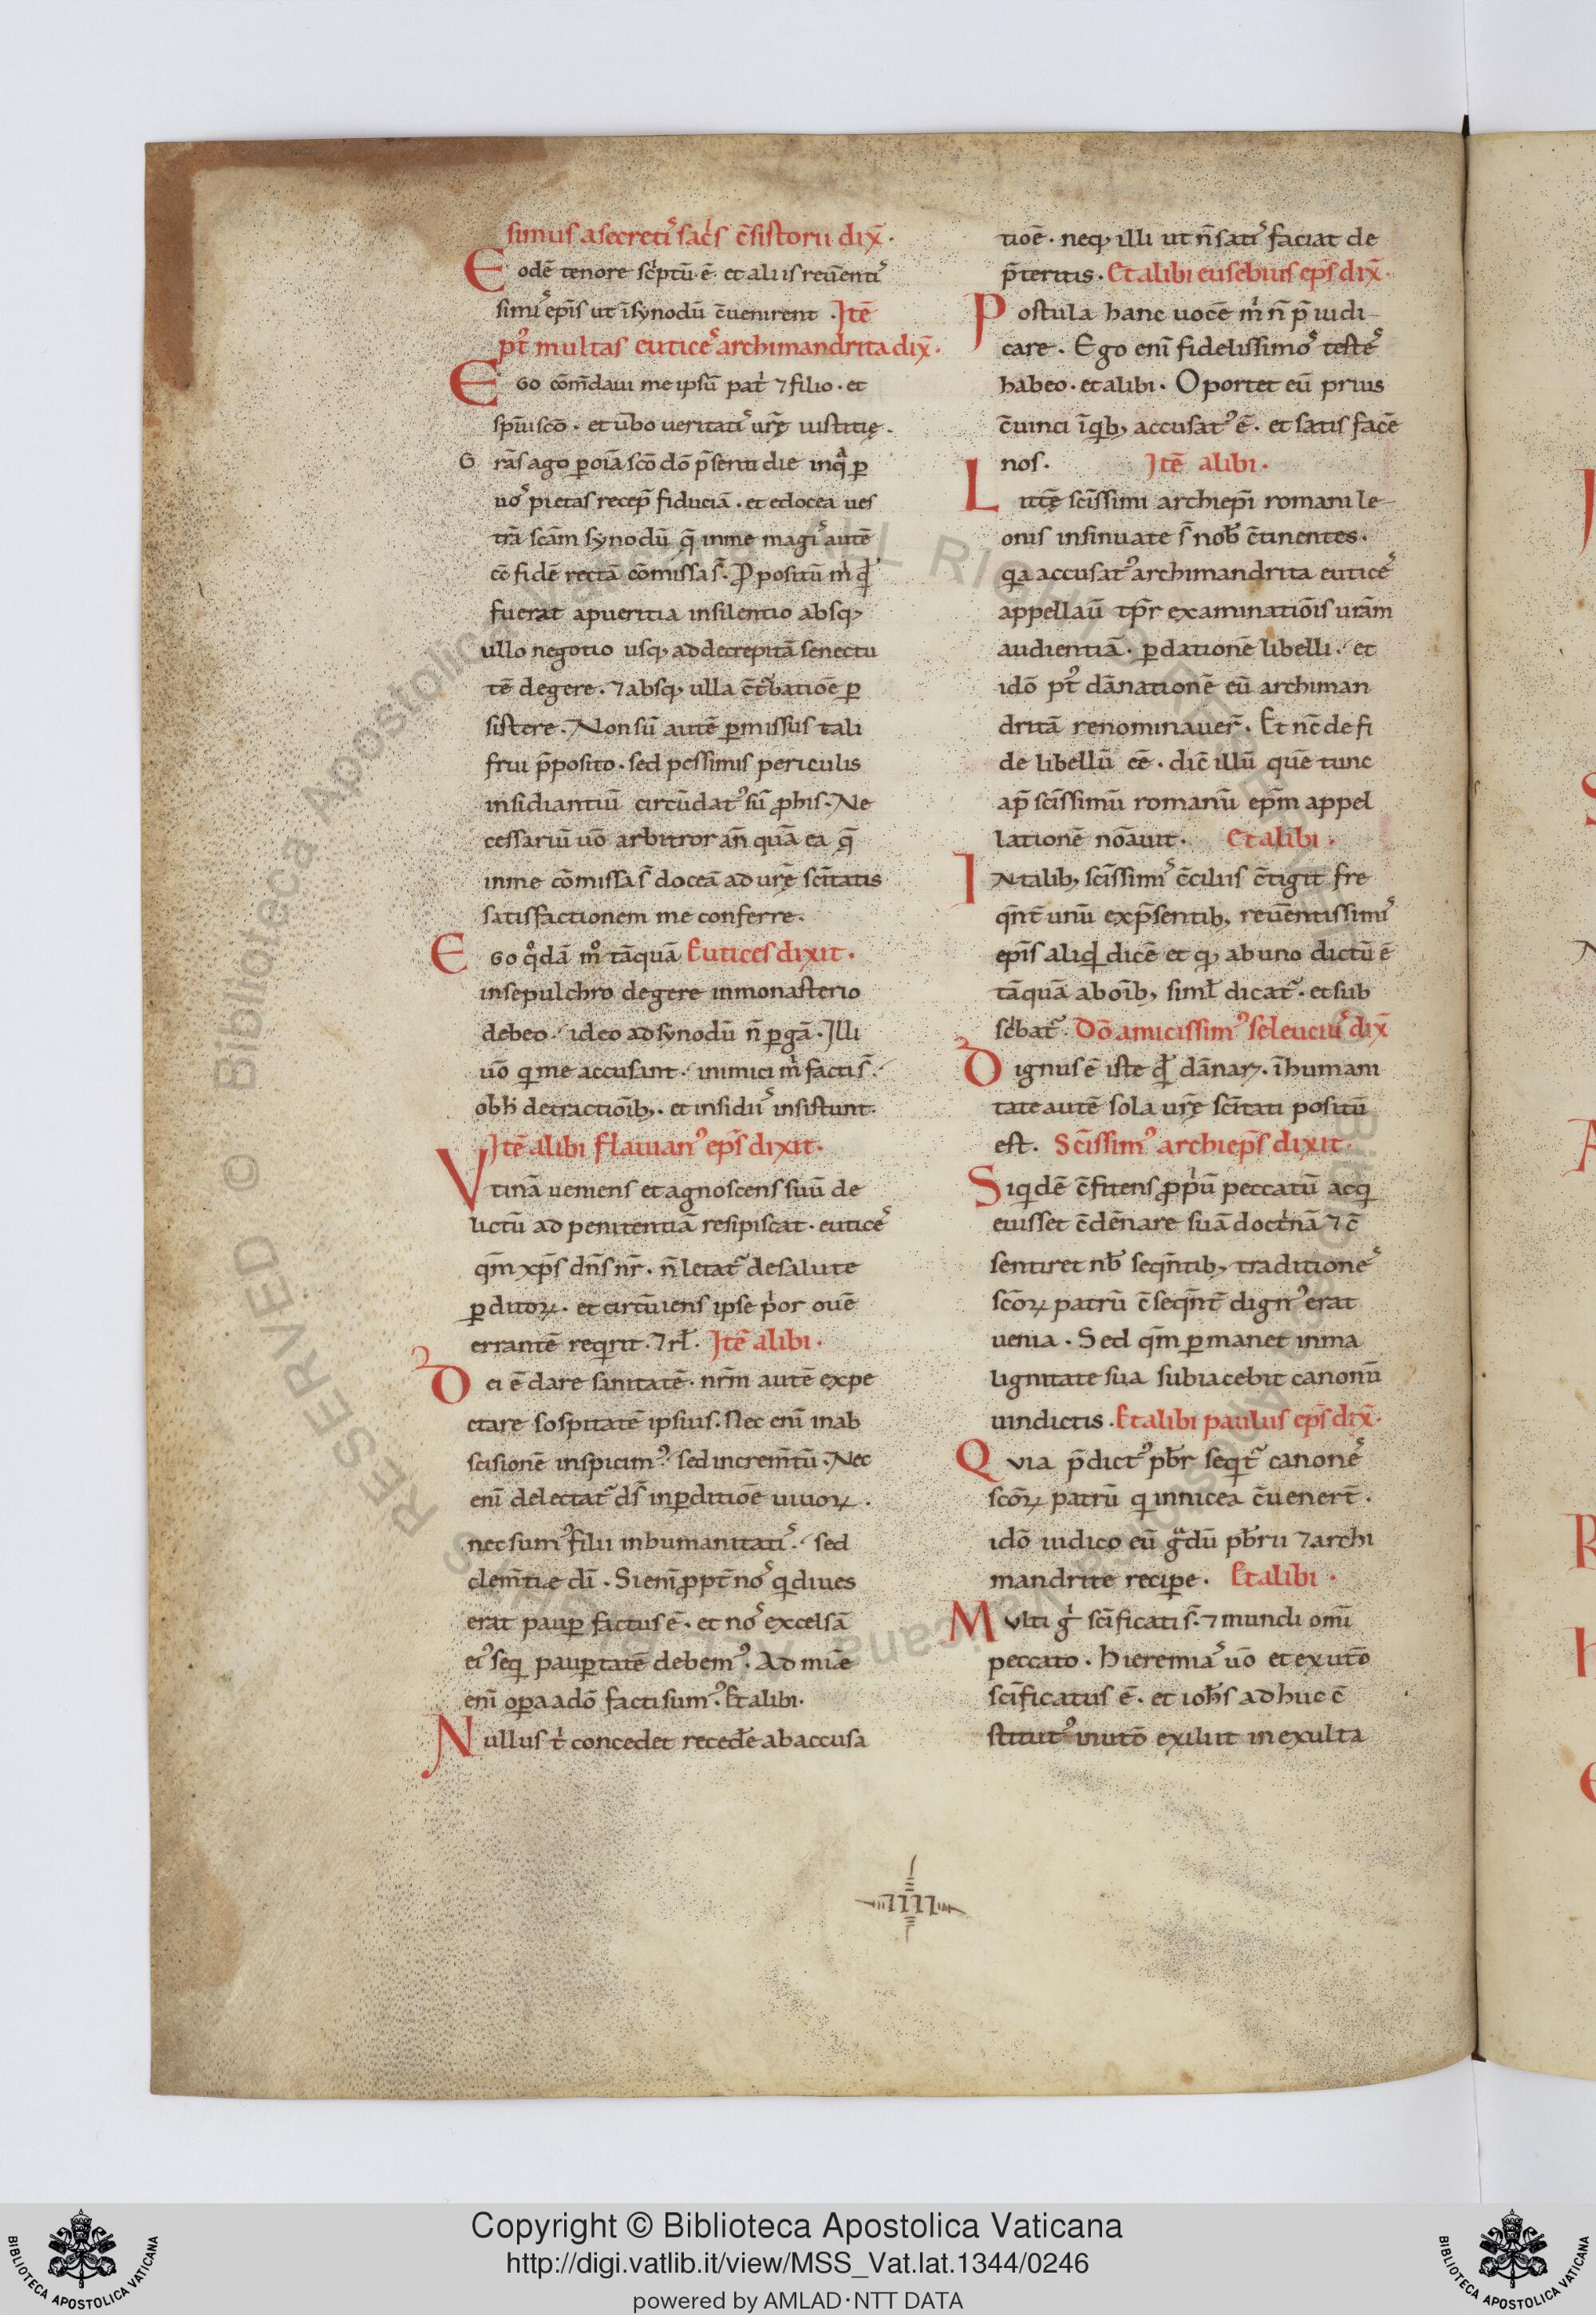 simus asecreti᷒ sac̄s c̄sistorii dix̄.
Eodē tenore sc̄ptū ē. et aliis reūenti᷒
simi᷒ ep̄is ut ī synodū c̄uenirent. Itē
pꝰt multas eutice᷒ archimandrita dix̄.
Ego cōm̄daui me ipsū pat̄ ⁊ filio. et
sp̄iui scō. et ūbo ueritati᷒ ur̄ę iustitię.
Grās ago ꝑ oīa scō dō p̄senti die in qͣ ꝑ
uo᷒ pietas recep̄ fiduciā. et edocea ues
trā scām synodū q̄ in me magi᷒ autē
cē fidē rectā cōmissa s̄. Ꝓpositū m̄ qđ
fuerat a pueritia in silentio absq;
ullo negotio usq; ad decrepitā senectu
tē degere. ⁊ absq; ulla c̄t̄batiōe ꝑ
sistere. Non sū autē ꝑmissus tali
frui p̄posito. sed pessimis periculis
insidiantiū circūdatꝰ sū ꝓhis. Ne
cessariū uō arbitror an̄ quā ea q̄
in me cōmissa s̄ doceā ad ur̄ę sc̄itatis
satisfactionem me conferre.
Ego qͦdā mͦ tāquā Eutices dixit.
in sepulchro degere in monasterio
debeo. ideo ad synodū n̄ ꝑgā. Illi
uō qui me accusant. inimici m̄ facti s̄.
ob h̄ detractiōib;. et insidii᷒ insistunt.
Itē alibi Flauianꝰ ep̄s dixit.
Vtinā ueniens et agnoscens suū de
lictū ad penitentiā resipiscat. eutice᷒
qm̄ xp̄s dn̄s nr̄. n̄ letat᷑ de salute
ꝑditoꝝ. et circūiens ipse p̄or ouē
errantē reqirit. ⁊ rł. Itē alibi.
Dei ē dare sanitatē. nrm̄ autē expe
ctare sospitatē ipsius. Nec enī in ab
scisionē inspicimꝰ. sed increm̄tū. Nec
enī delectat᷑ ds̄ in ꝑditiōe uiuoꝝ.
nec sumꝰ filii inhumanitati᷒. sed
clem̄tie dī. Si enī ꝓpt̄ no᷒ qi diues
erat pauꝑ factus ē. et no᷒ excelsā
eiꝰ seqi pauꝑtatē debemꝰ. Ad miæ
enī oꝑa a dō facti sumꝰ. Et alibi.
Nullus t̄ concedet recedē ab accusa
tiōe. neq; illi ut n̄ sati᷒ faciat de
p̄teritis. Et alibi eusebius ep̄s dix̄.
Postula hanc uocē m̄ n̄ p̄iudi-
care. Ego enī fidelissimo᷒ teste᷒
habeo. et alibi. Oportet eū prius
c̄uinci ī qib; accusatꝰ ē. et satis facē
nos. Itē alibi.
Littę sc̄issimi archiep̄i romani le-
onis insinuate s̄ nob̄ c̄tinentes.
qia accusatꝰ archimandrita eutice᷒
appellaū tp̄r examinatiōis urām
audientiā. ꝑ dationē libelli. et
idō pꝰt dānationē eū archiman
dritā renominauer̄. Et nc̄ de fi
de libellū eē. dic̄ illū quē tunc
ap̄ sc̄issimū romanū ep̄m appel
lationē nōauit. Et alibi.
In talib; sc̄issimi᷒ c̄ciliis c̄tigit fre
qn̄t unū ex p̄sentib; reūentissimi᷒
ep̄is aliqđ dicē et q; ab uno dictū ē
tāquā ab oīb; simł dicat᷑. et sub
sc̄bat᷑. Dō amicissimꝰ seleuciu᷒ dix̄
Dignus ē iste qđ dānaꝝ. īhumani
tate autē sola ur̄ę sc̄itati positū
est. Sc̄issimꝰ archiep̄s dixit.
Siqidē c̄fitens ꝓp̄ū peccatū acqi
euisset c̄dēnare suā doct̄nā ⁊ c̄
sentiret nb̄ seqn̄tib; traditione᷒
scōꝝ patrū c̄seqn̄t̄ dignꝰ erat
uenia. Sed qm̄ ꝑmanet in ma
lignitate sua subiacebit canonū
uindictis. Et alibi paulus ep̄s dix̄.
Qvia p̄dictꝰ pb̄r seqit᷑ canone᷒
scōꝝ patrū qi in nicea c̄uenert̄.
idō iudico eū gͣdū pb̄rii ⁊ archi
mandrite reciꝑe. Et alibi.
Mvlti ḡ sc̄ificati s̄. ⁊ mundi omī
peccato. Hieremia᷒ uō et ex utō
sc̄ificatus ē. et ioh̄s adhuc c̄
stitutꝰ in utō exiluit in exulta
IIII
Copyright © Biblioteca Apostolica Vaticana
http://digi.vatlib.it/view/MSS_Vat.lat.1344/0246
powered by AMLAD·NTT DATA
BIBLIOTECA APOSTOLICA VATICANA
BIBLIOTECA APOSTOLICA VATICANA